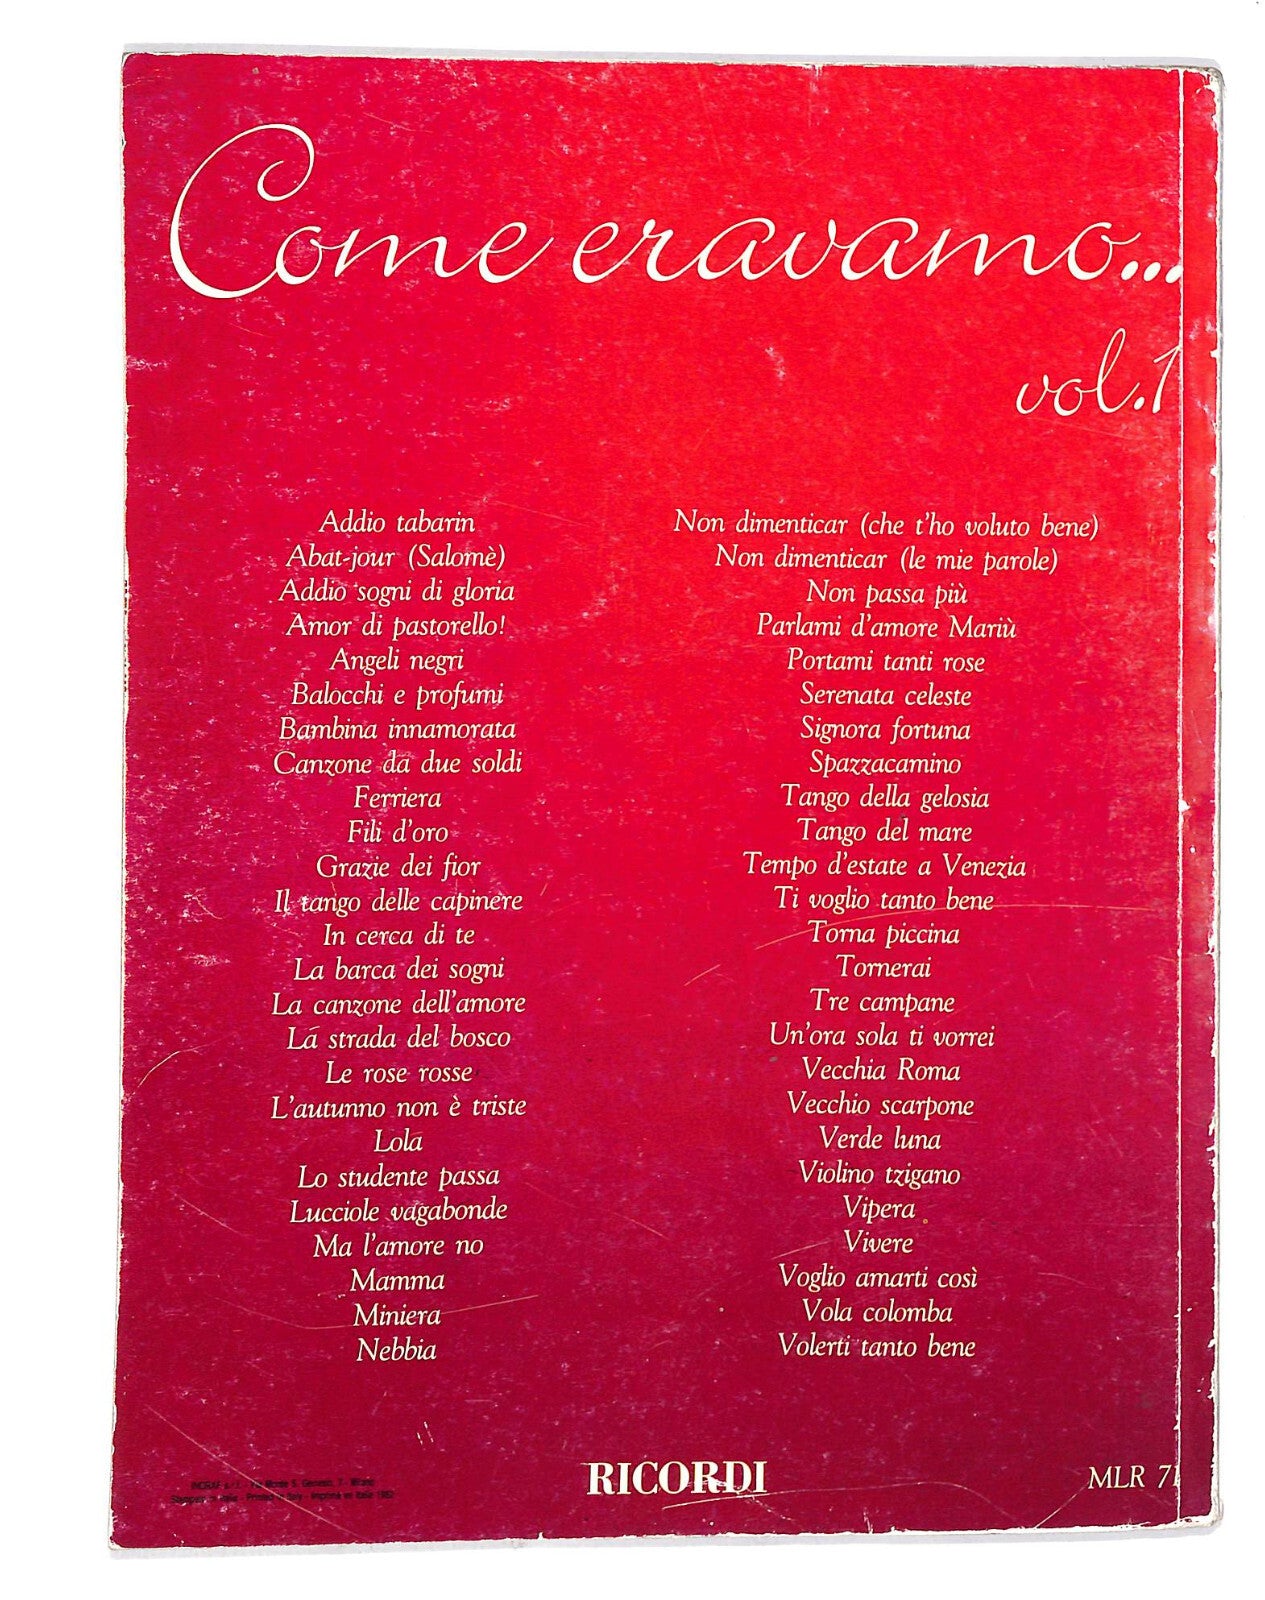 Come eravamo...
vol.1
Addio tabarin
Abat-jour (Salomè)
Addio sogni di gloria
Amor di pastorello!
Angeli negri
Balocchi e profumi
Bambina innamorata
Canzone da due soldi
Ferriera
Fili d'oro
Grazie dei fior
Il tango delle capinere
In cerca di te
La barca dei sogni
La canzone dell'amore
La strada del bosco
Le rose rosse
L'autunno non è triste
Lola
Lo studente passa
Lucciole vagabonde
Ma l'amore no
Mamma
Miniera
Nebbia
Non dimenticar (che t'ho voluto bene)
Non dimenticar (le mie parole)
Non passa più
Parlami d'amore Mariù
Portami tanti rose
Serenata celeste
Signora fortuna
Spazzacamino
Tango della gelosia
Tango del mare
Tempo d'estate a Venezia
Ti voglio tanto bene
Torna piccina
Tornerai
Tre campane
Un'ora sola ti vorrei
Vecchia Roma
Vecchio scarpone
Verde luna
Violino tzigano
Vipera
Vivere
Voglio amarti così
Vola colomba
Volerti tanto bene
7 - Milano
Printed in Italy - Imprimé en Italie 1982
RICORDI
MLR